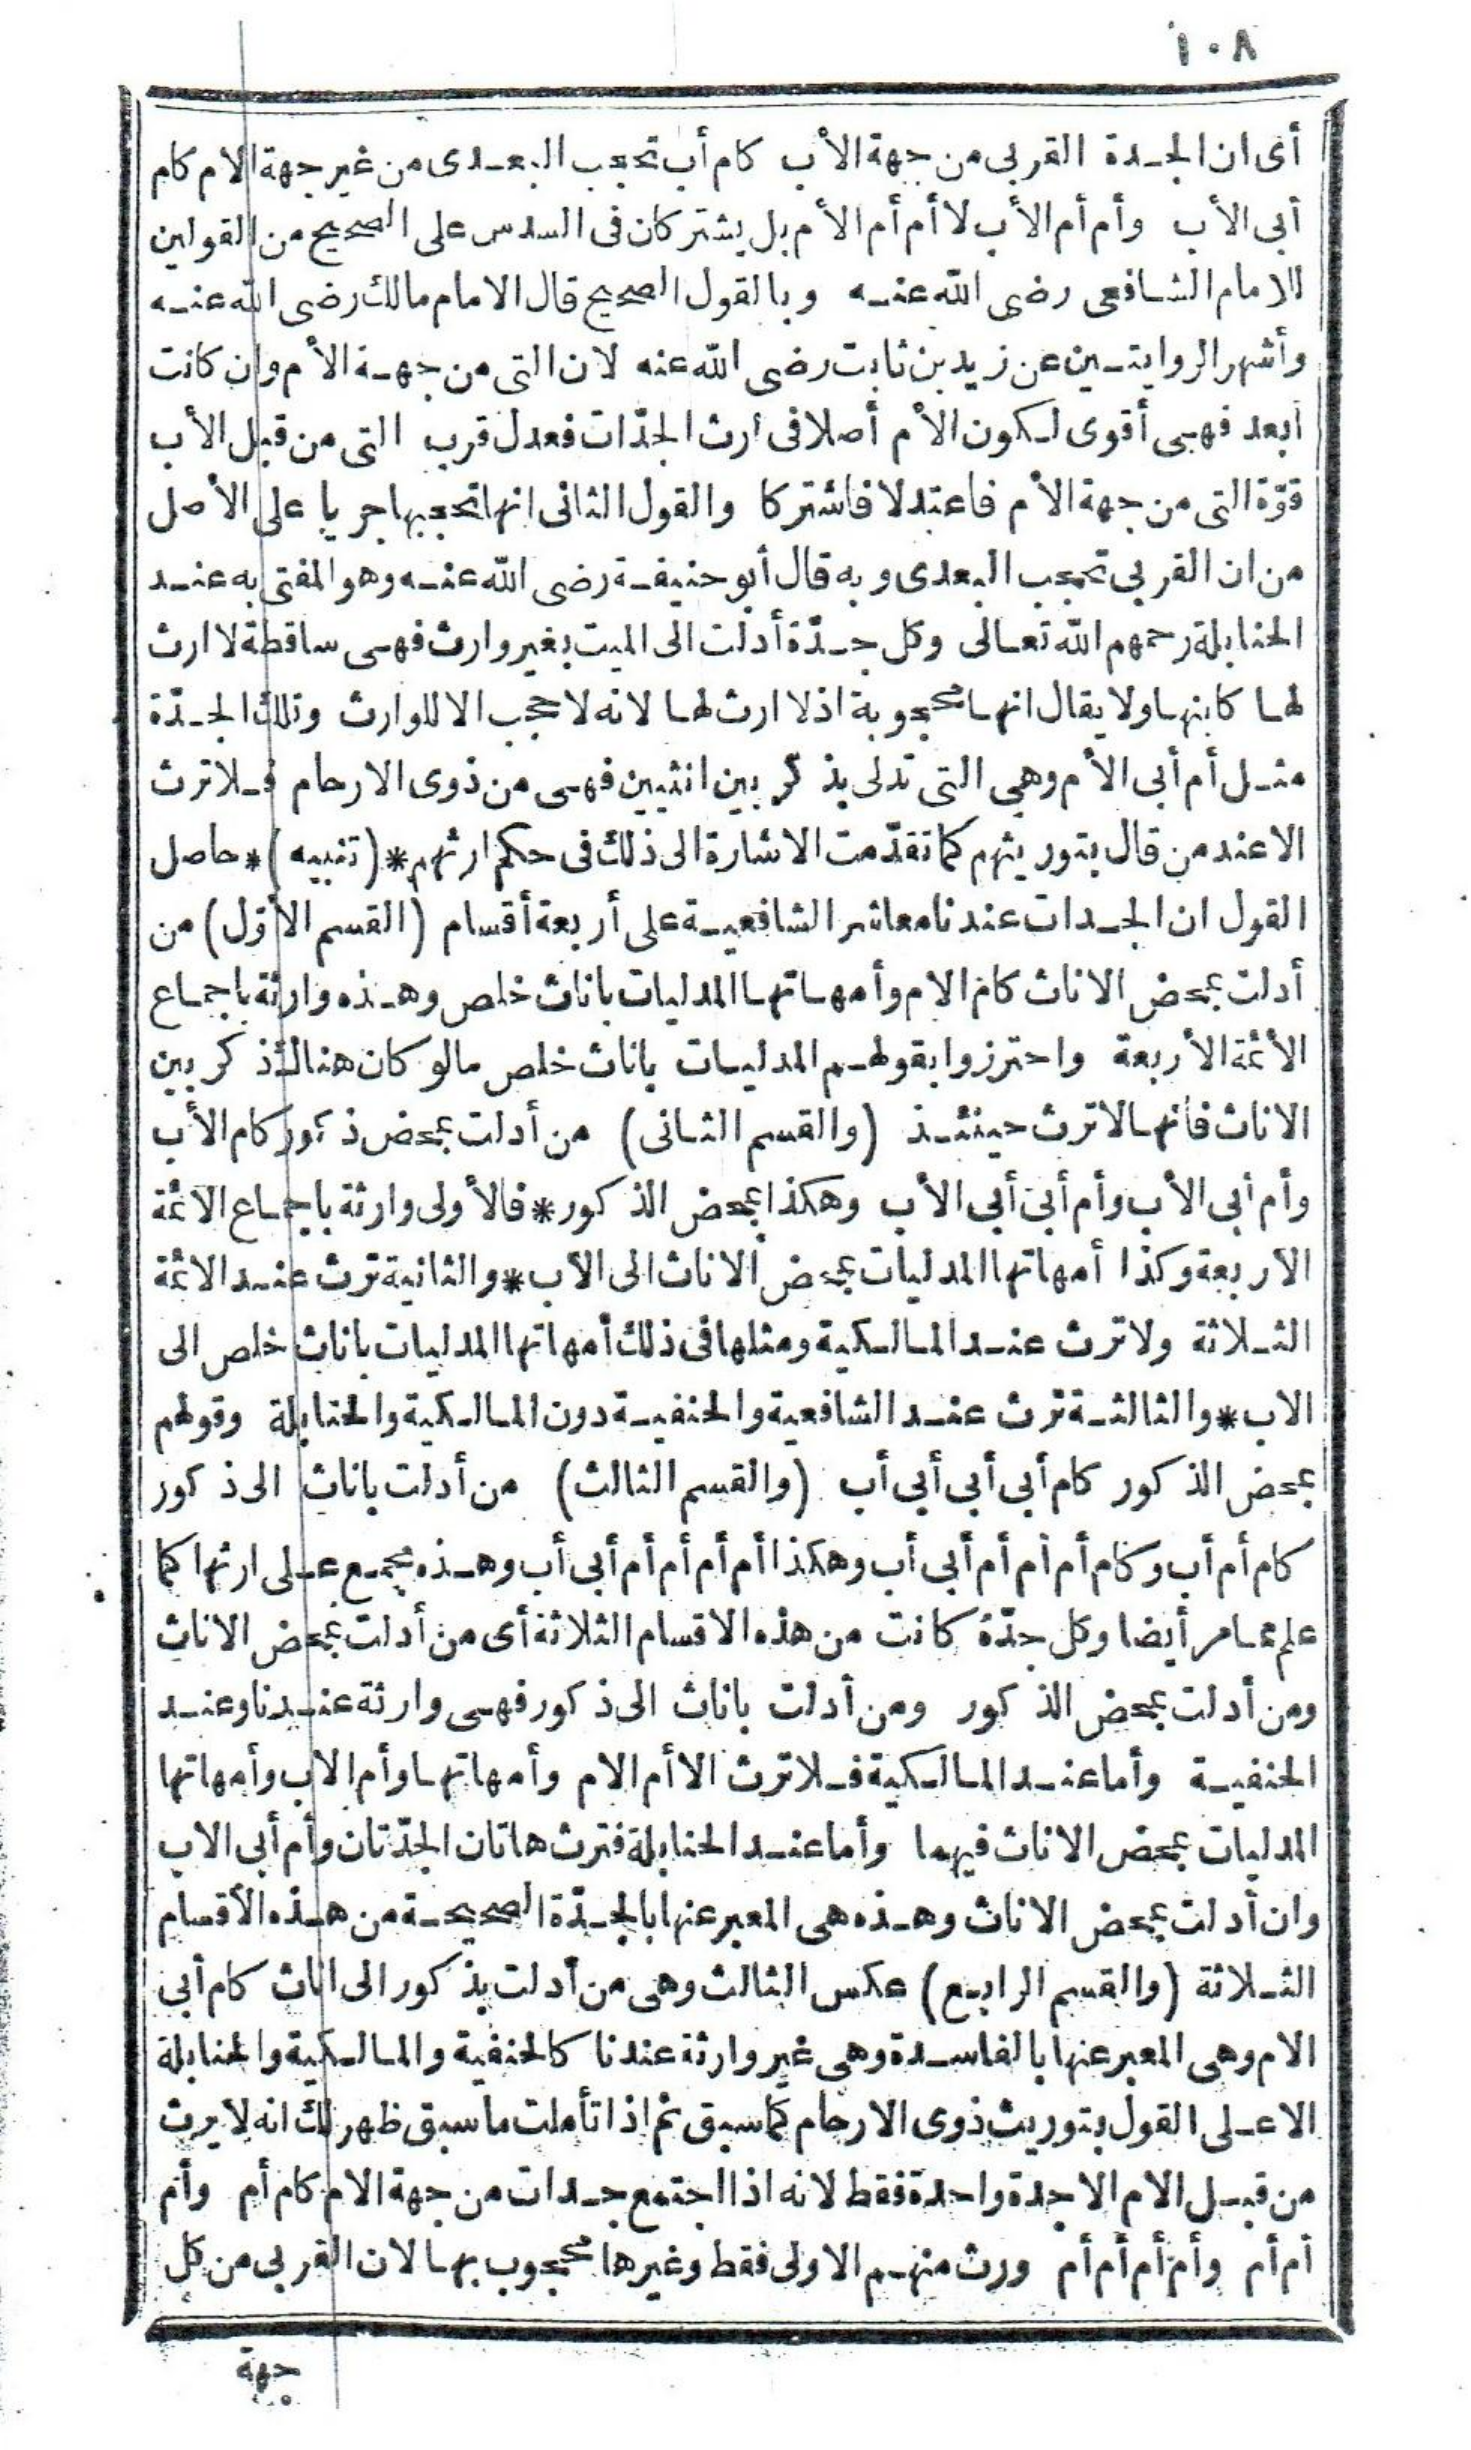 ١٠٨
أى ان الجدة القربى من جهة الأب كام أب تحجب البعدى من غير جهة الام كام
أبى الأب وأم أم الأب لا أم أم الأم بل يشتركان فى السدس على الصحيح من القولين
للامام الشافعى رضى الله عنه وبالقول الصحيح قال الامام مالك رضى الله عنه
وأشهر الروايتين عن زيد بن ثابت رضى الله عنه لان التى من جهة الأم وان كانت
أبعد فهى أقوى لكون الأم أصلا فى ارث الجدّات فعدل قرب التى من قبل الأب
قوّة التى من جهة الأم فاعتدلا فاشتركا والقول الثانى انها تحجبها جريا على الأصل
من ان القربى تحجب البعدى وبه قال أبو حنيفة رضى الله عنه وهو المفتى به عند
الحنابلة رحمهم الله تعالى وكل جدّة أدلت الى الميت بغير وارث فهى ساقطة لا ارث
لها كابنها ولا يقال انها محجوبة اذ لا ارث لها لانه لا حجب الا للوارث وتلك الجدّة
مثل أم أبى الأم وهى التى تدلى بذكر بين انثيين فهى من ذوى الارحام فلا ترث
الا عند من قال بتوريثهم كما تقدّمت الاشارة الى ذلك فى حكم ارثهم * (تنبيه) * حاصل
القول ان الجدات عندنا معاشر الشافعية على أربعة أقسام (القسم الأول) من
أدلت بمحض الاناث كام الام وأمهاتها المدليات باناث خلص وهذه وارثة باجماع
الأئمة الأربعة واحترزوا بقولهم المدليات باناث خلص مالو كان هناك ذكر بين
الاناث فانها لا ترث حينئذ (والقسم الثانى) من أدلت بمحض ذكور كام الأب
وأم أبى الأب وأم أبى أبى الأب وهكذا بمحض الذكور * فالأولى وارثة باجماع الائمة
الأربعة وكذا أمهاتها المدليات بمحض الاناث الى الأب * والثانية ترث عند الائمة
الثلاثة ولا ترث عند المالكية ومثلها فى ذلك أمهاتها المدليات باناث خلص الى
الاب * والثالثة ترث عند الشافعية والحنفية دون المالكية والحنابلة وقولهم
بمحض الذكور كام أبى أبى أبى أب (والقسم الثالث) من أدلت باناث الى ذكور
كام أم أب وكام أم أم أم أبى أب وهكذا أم أم أم أم أبى أب وهذه مجمع على ارثها كما
علم مما مر أيضا وكل جدّة كانت من هذه الاقسام الثلاثة أى من أدلت بمحض الاناث
ومن أدلت بمحض الذكور ومن أدلت باناث الى ذكور فهى وارثة عندنا وعند
الحنفية وأما عند المالكية فلا ترث الا أم الام وأمهاتها وأم الاب وأمهاتها
المدليات بمحض الاناث فيهما وأما عند الحنابلة فترث هاتان الجدّتان وأم أبى الاب
وان أدلت بمحض الاناث وهذه هى المعبر عنها بالجدّة الصحيحة من هذه الأقسام
الثلاثة (والقسم الرابع) عكس الثالث وهى من أدلت بذكور الى اناث كام أبى
الام وهى المعبر عنها بالفاسدة وهى غير وارثة عندنا كالحنفية والمالكية والحنابلة
الا على القول بتوريث ذوى الارحام كما سبق ثم اذا تأملت ما سبق ظهر لك انه لا يرث
من قبل الام الا جدة واحدة فقط لانه اذا اجتمع جدات من جهة الام كام أم وأم
أم أم وأم أم أم أم ورث منهم الاولى فقط وغيرها محجوب بها لان القربى من كل
جهة